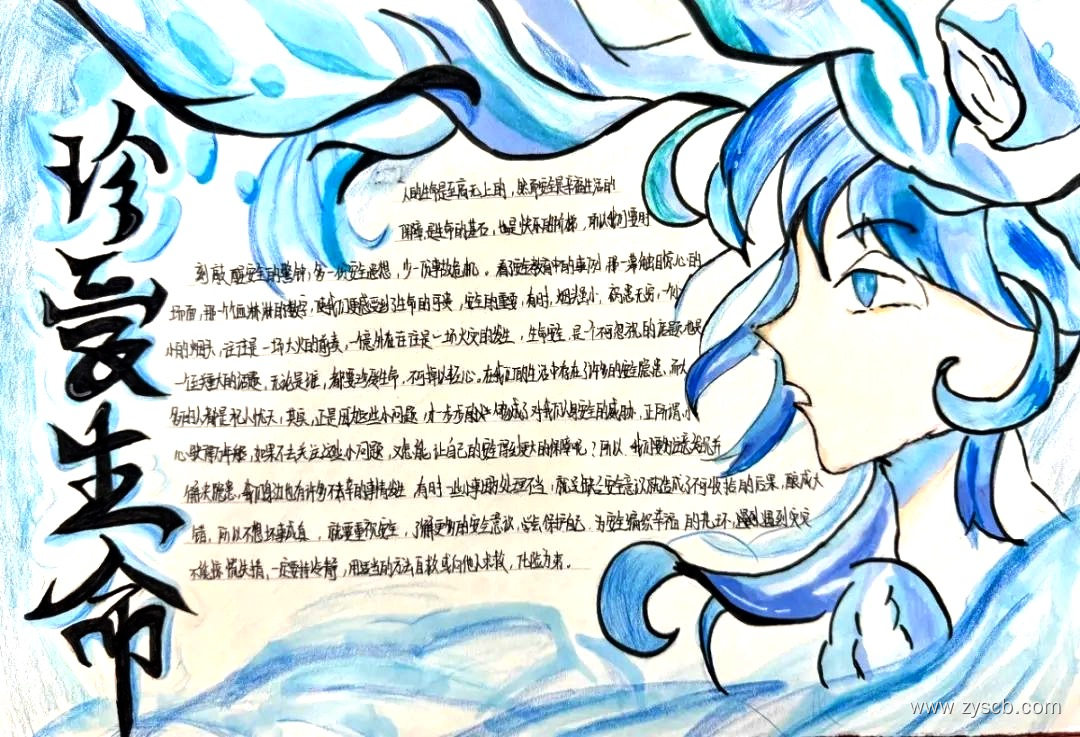 珍爱生命
人的生命是至高无上的，然而安全是幸福生活的
保障，是生命的基石，也是快乐的阶梯，所以我们要时
刻敲醒安全的警钟，多一次安全思想，少一次事故危机。看了安全教育中的事例 那一幕触目惊心的
场面，那一个血淋淋的数字，让我们更感受到了生命的可贵，安全的重要，有时，烟头虽小，祸患无穷，一个小
小的烟头，往往是一场大火的 一个 往往是一场火灾的发生，生命安全 是一个不可忽视的主题也是
一个 大的话题，无论是谁，都要珍爱生命，不可掉以轻心。在我们的生活中存在了许多的安全隐患，而大
多的人都是杞人忧天，其实，正是因为这些小问题 才 对我们人身安全的威胁，正所谓，小
心驶得万年船，如果不去关注这些小问题，又怎能让自己的安全得到更大的保障呢？所以，我们要
隐患，我们身边也有许多不幸的事情发生 有时一些小事故处理不当，就这缺乏安全意识就造成了不可收拾的后果，酿成大
错，所以不想坏事成真，就要重视安全，了解更多的安全意识，学会保护自己，为安全编织幸福的光环，遇到火灾
不能惊慌失措，一定要保持冷静，用适当的方法自救或向他人求救，化险为夷。
www.zyscb.com